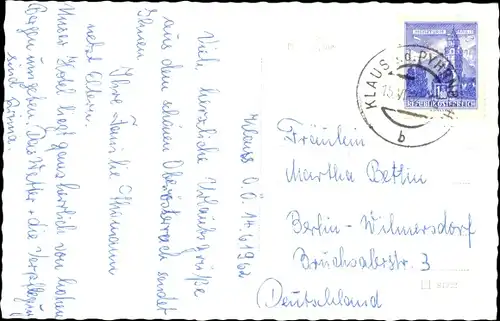 Klaus O.Ö. 14.6.1962
Viele herzliche Urlaubsgrüße
aus dem schönen Oberösterreich sendet
Ihnen
Ihre Familie
nebst Eltern.
Unser Hotel liegt ganz herrlich von hohen
Bergen umgeben. Das Wetter + die Verpflegung
sind prima.
KLAUS a.d. PYHRNB.H.
b
REPUBLIK ÖSTERREICH
Fräulein
Martha Bettin
Berlin-Wilmersdorf
Bruchsalerstr. 3
Deutschland